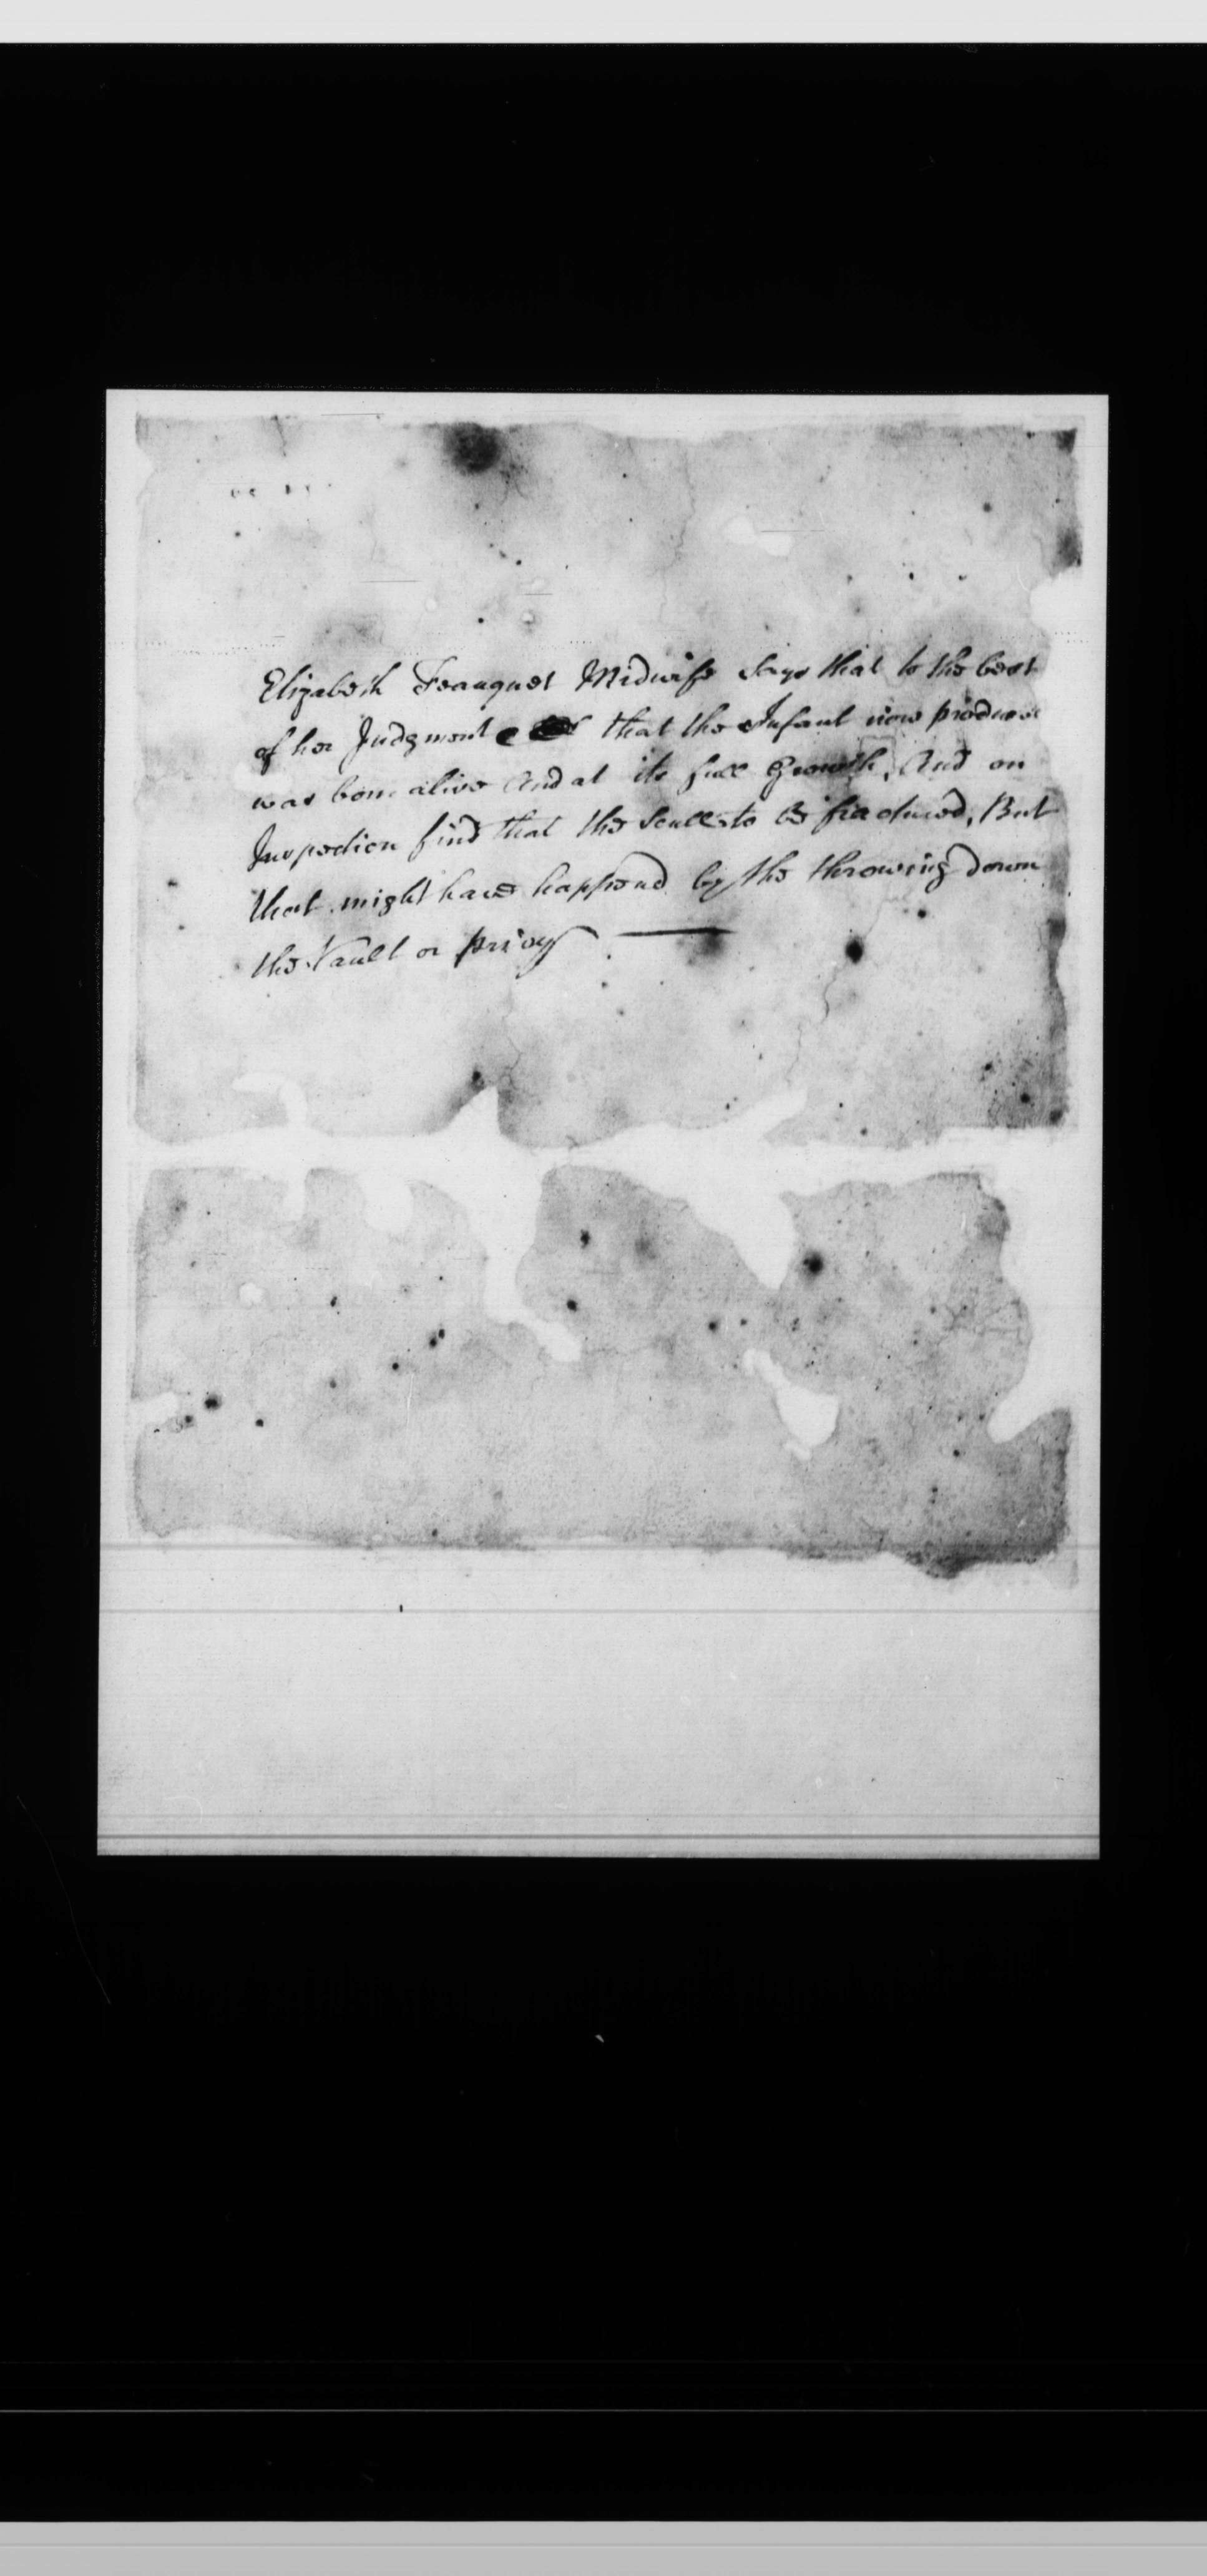 Elizabeth Feauquet Midwife Says that to the best
of her Judgment that the Infant now produced
was born alive And at its full Growth, And on
Inspection find that the Scull to be fractured, But
that might have happend by the throwing down
the Vault or privy